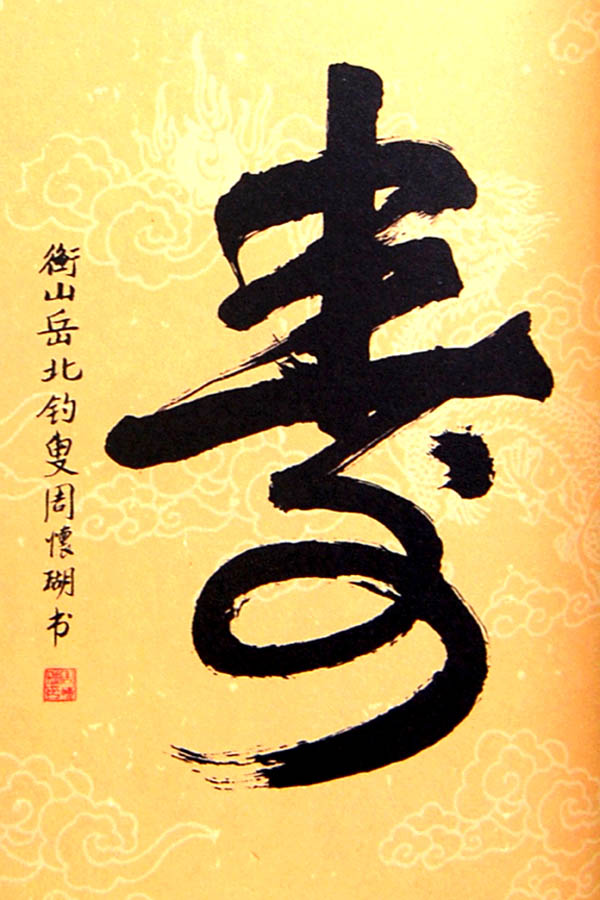 寿
衡山岳北钓叟周懷瑚书